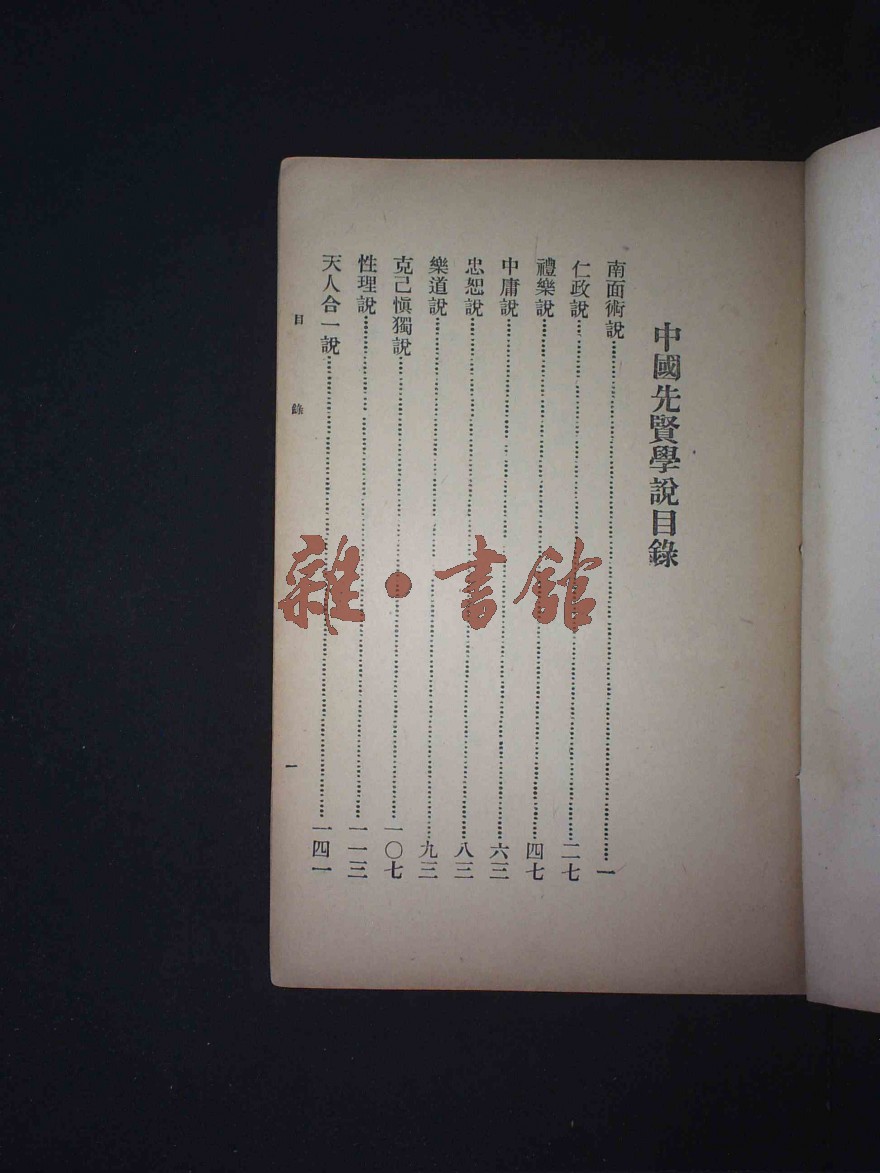 中國先賢學說目錄
南面術說……一
仁政說……二七
禮樂說……四七
中庸說……六三
忠恕說……八三
樂道說……九三
克己慎獨說……一〇七
性理說……一一三
天人合一說……一四一
目錄 一
雜·書館